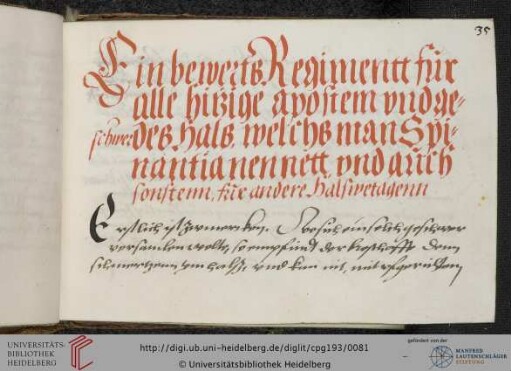 35
Ein bewerts Regimentt für
alle hitzige apostem vnd ge-
schwer des Hals, welchs man Spi-
nantia nennett, vnd auch
sonstenn, für andere Halswetagenn
Erstlich ist zu mercken, So sich ein solch geschwer
versamlen wolt, so empfindt der
schmertzenn im halse, vnd kan nit,
UNIVERSITÄTS-
BIBLIOTHEK
HEIDELBERG
http://digi.ub.uni-heidelberg.de/diglit/cpg193/0081
© Universitätsbibliothek Heidelberg
gefördert von der
MANFRED
LAUTENSCHLÄGER
STIFTUNG